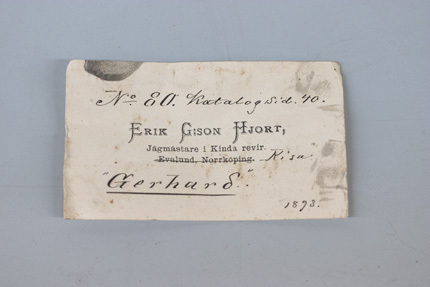 No 80. Katalog Sid. 40.
ERIK G:SON HJORT,
Jägmästare i Kinda revir.
Evalund, Norrköping. Kisa
"Gerhard".
1893.